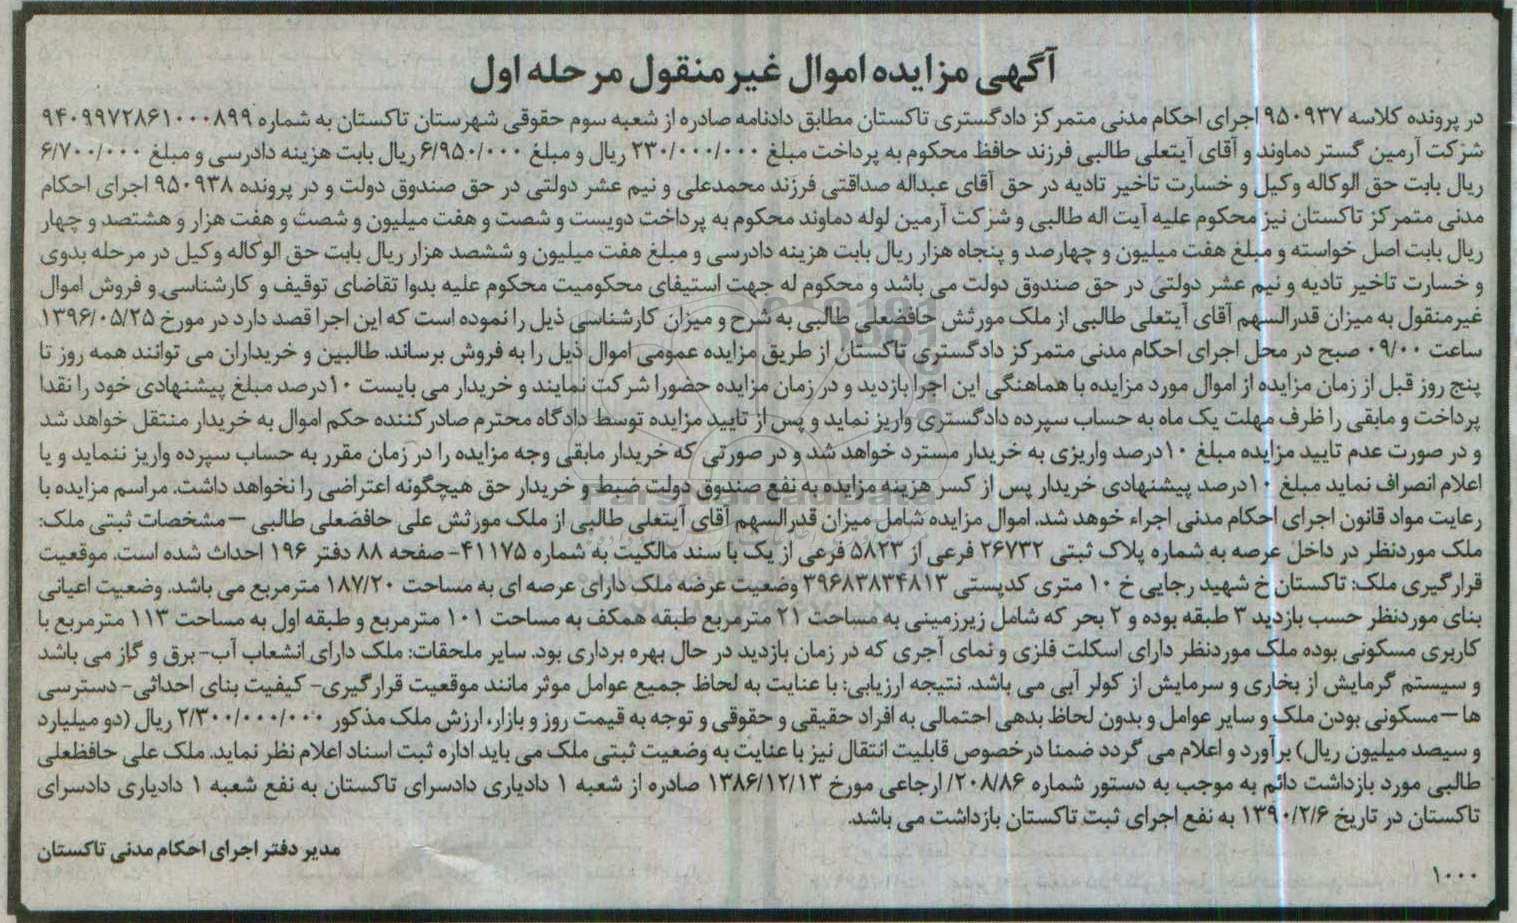 آگهی مزایده اموال غیرمنقول مرحله اول
در پرونده کلاسه ۹۵۰۹۳۷ اجرای احکام مدنی متمرکز دادگستری تاکستان مطابق دادنامه صادره از شعبه سوم حقوقی شهرستان تاکستان به شماره ۹۴۰۹۹۷۲۸۶۱۰۰۰۸۹۹
شرکت آرمین گستر دماوند و آقای آیتعلی طالبی فرزند حافظ محکوم به پرداخت مبلغ ۲۳۰/۰۰۰/۰۰۰ ریال و مبلغ ۶/۹۵۰/۰۰۰ ریال بابت هزینه دادرسی و مبلغ ۶/۷۰۰/۰۰۰
ریال بابت حق الوکاله وکیل و خسارت تاخیر تادیه در حق آقای عبداله صداقتی فرزند محمدعلی و نیم عشر دولتی در حق صندوق دولت و در پرونده ۹۵۰۹۳۸ اجرای احکام
مدنی متمرکز تاکستان نیز محکوم علیه آیت اله طالبی و شرکت آرمین لوله دماوند محکوم به پرداخت دویست و شصت و هفت میلیون و شصت و هفت هزار و هشتصد و چهار
ریال بابت اصل خواسته و مبلغ هفت میلیون و چهارصد و پنجاه هزار ریال بابت هزینه دادرسی و مبلغ هفت میلیون و ششصد هزار ریال بابت حق الوکاله وکیل در مرحله بدوی
و خسارت تاخیر تادیه و نیم عشر دولتی در حق صندوق دولت می باشد و محکوم له جهت استیفای محکومیت محکوم علیه بدوا تقاضای توقیف و کارشناسی و فروش اموال
غیرمنقول به میزان قدرالسهم آقای آیتعلی طالبی از ملک مورثش حافضعلی طالبی به شرح و میزان کارشناسی ذیل را نموده است که این اجرا قصد دارد در مورخ ۱۳۹۶/۰۵/۲۵
ساعت ۰۹/۰۰ صبح در محل اجرای احکام مدنی متمرکز دادگستری تاکستان از طریق مزایده عمومی اموال ذیل را به فروش برساند. طالبین و خریداران می توانند همه روز تا
پنج روز قبل از زمان مزایده از اموال مورد مزایده با هماهنگی این اجرا بازدید و در زمان مزایده حضورا شرکت نمایند و خریدار می بایست ۱۰درصد مبلغ پیشنهادی خود را نقدا
پرداخت و مابقی را ظرف مهلت یک ماه به حساب سپرده دادگستری واریز نماید و پس از تایید مزایده توسط دادگاه محترم صادرکننده حکم اموال به خریدار منتقل خواهد شد
و در صورت عدم تایید مزایده مبلغ ۱۰درصد واریزی به خریدار مسترد خواهد شد و در صورتی که خریدار مابقی وجه مزایده را در زمان مقرر به حساب سپرده واریز ننماید و یا
اعلام انصراف نماید مبلغ ۱۰درصد پیشنهادی خریدار پس از کسر هزینه مزایده به نفع صندوق دولت ضبط و خریدار حق هیچگونه اعتراضی را نخواهد داشت. مراسم مزایده با
رعایت مواد قانون اجرای احکام مدنی اجراء خوهد شد. اموال مزایده شامل میزان قدرالسهم آقای آیتعلی طالبی از ملک مورثش علی حافضعلی طالبی –مشخصات ثبتی ملک:
ملک موردنظر در داخل عرصه به شماره پلاک ثبتی ۲۶۷۳۲ فرعی از ۵۸۲۳ فرعی از یک با سند مالکیت به شماره ۴۱۱۷۵- صفحه ۸۸ دفتر ۱۹۶ احداث شده است. موقعیت
قرارگیری ملک: تاکستان خ شهید رجایی خ ۱۰ متری کدپستی ۳۹۶۸۳۸۳۴۸۱۳ وضعیت عرضه ملک دارای عرصه ای به مساحت ۱۸۷/۲۰ مترمربع می باشد. وضعیت اعیانی
بنای موردنظر حسب بازدید ۳ طبقه بوده و ۲ بحر که شامل زیرزمینی به مساحت ۲۱ مترمربع طبقه همکف به مساحت ۱۰۱ مترمربع و طبقه اول به مساحت ۱۱۳ مترمربع با
کاربری مسکونی بوده ملک موردنظر دارای اسکلت فلزی و نمای آجری که در زمان بازدید در حال بهره برداری بود. سایر ملحقات: ملک دارای انشعاب آب- برق و گاز می باشد
و سیستم گرمایش از بخاری و سرمایش از کولر آبی می باشد. نتیجه ارزیابی: با عنایت به لحاظ جمیع عوامل موثر مانند موقعیت قرارگیری- کیفیت بنای احداثی- دسترسی
ها –مسکونی بودن ملک و سایر عوامل و بدون لحاظ بدهی احتمالی به افراد حقیقی و حقوقی و توجه به قیمت روز و بازار، ارزش ملک مذکور ۲/۳۰۰/۰۰۰/۰۰۰ ریال (دو میلیارد
و سیصد میلیون ریال) برآورد و اعلام می گردد ضمنا درخصوص قابلیت انتقال نیز با عنایت به وضعیت ثبتی ملک می باید اداره ثبت اسناد اعلام نظر نماید. ملک علی حافظعلی
طالبی مورد بازداشت دائم به موجب به دستور شماره ۲۰۸/۸۶/ ارجاعی مورخ ۱۳۸۶/۱۲/۱۳ صادره از شعبه ۱ دادیاری دادسرای تاکستان به نفع شعبه ۱ دادیاری دادسرای
تاکستان در تاریخ ۱۳۹۰/۲/۶ به نفع اجرای ثبت تاکستان بازداشت می باشد.
مدیر دفتر اجرای احکام مدنی تاکستان
۱۰۰۰